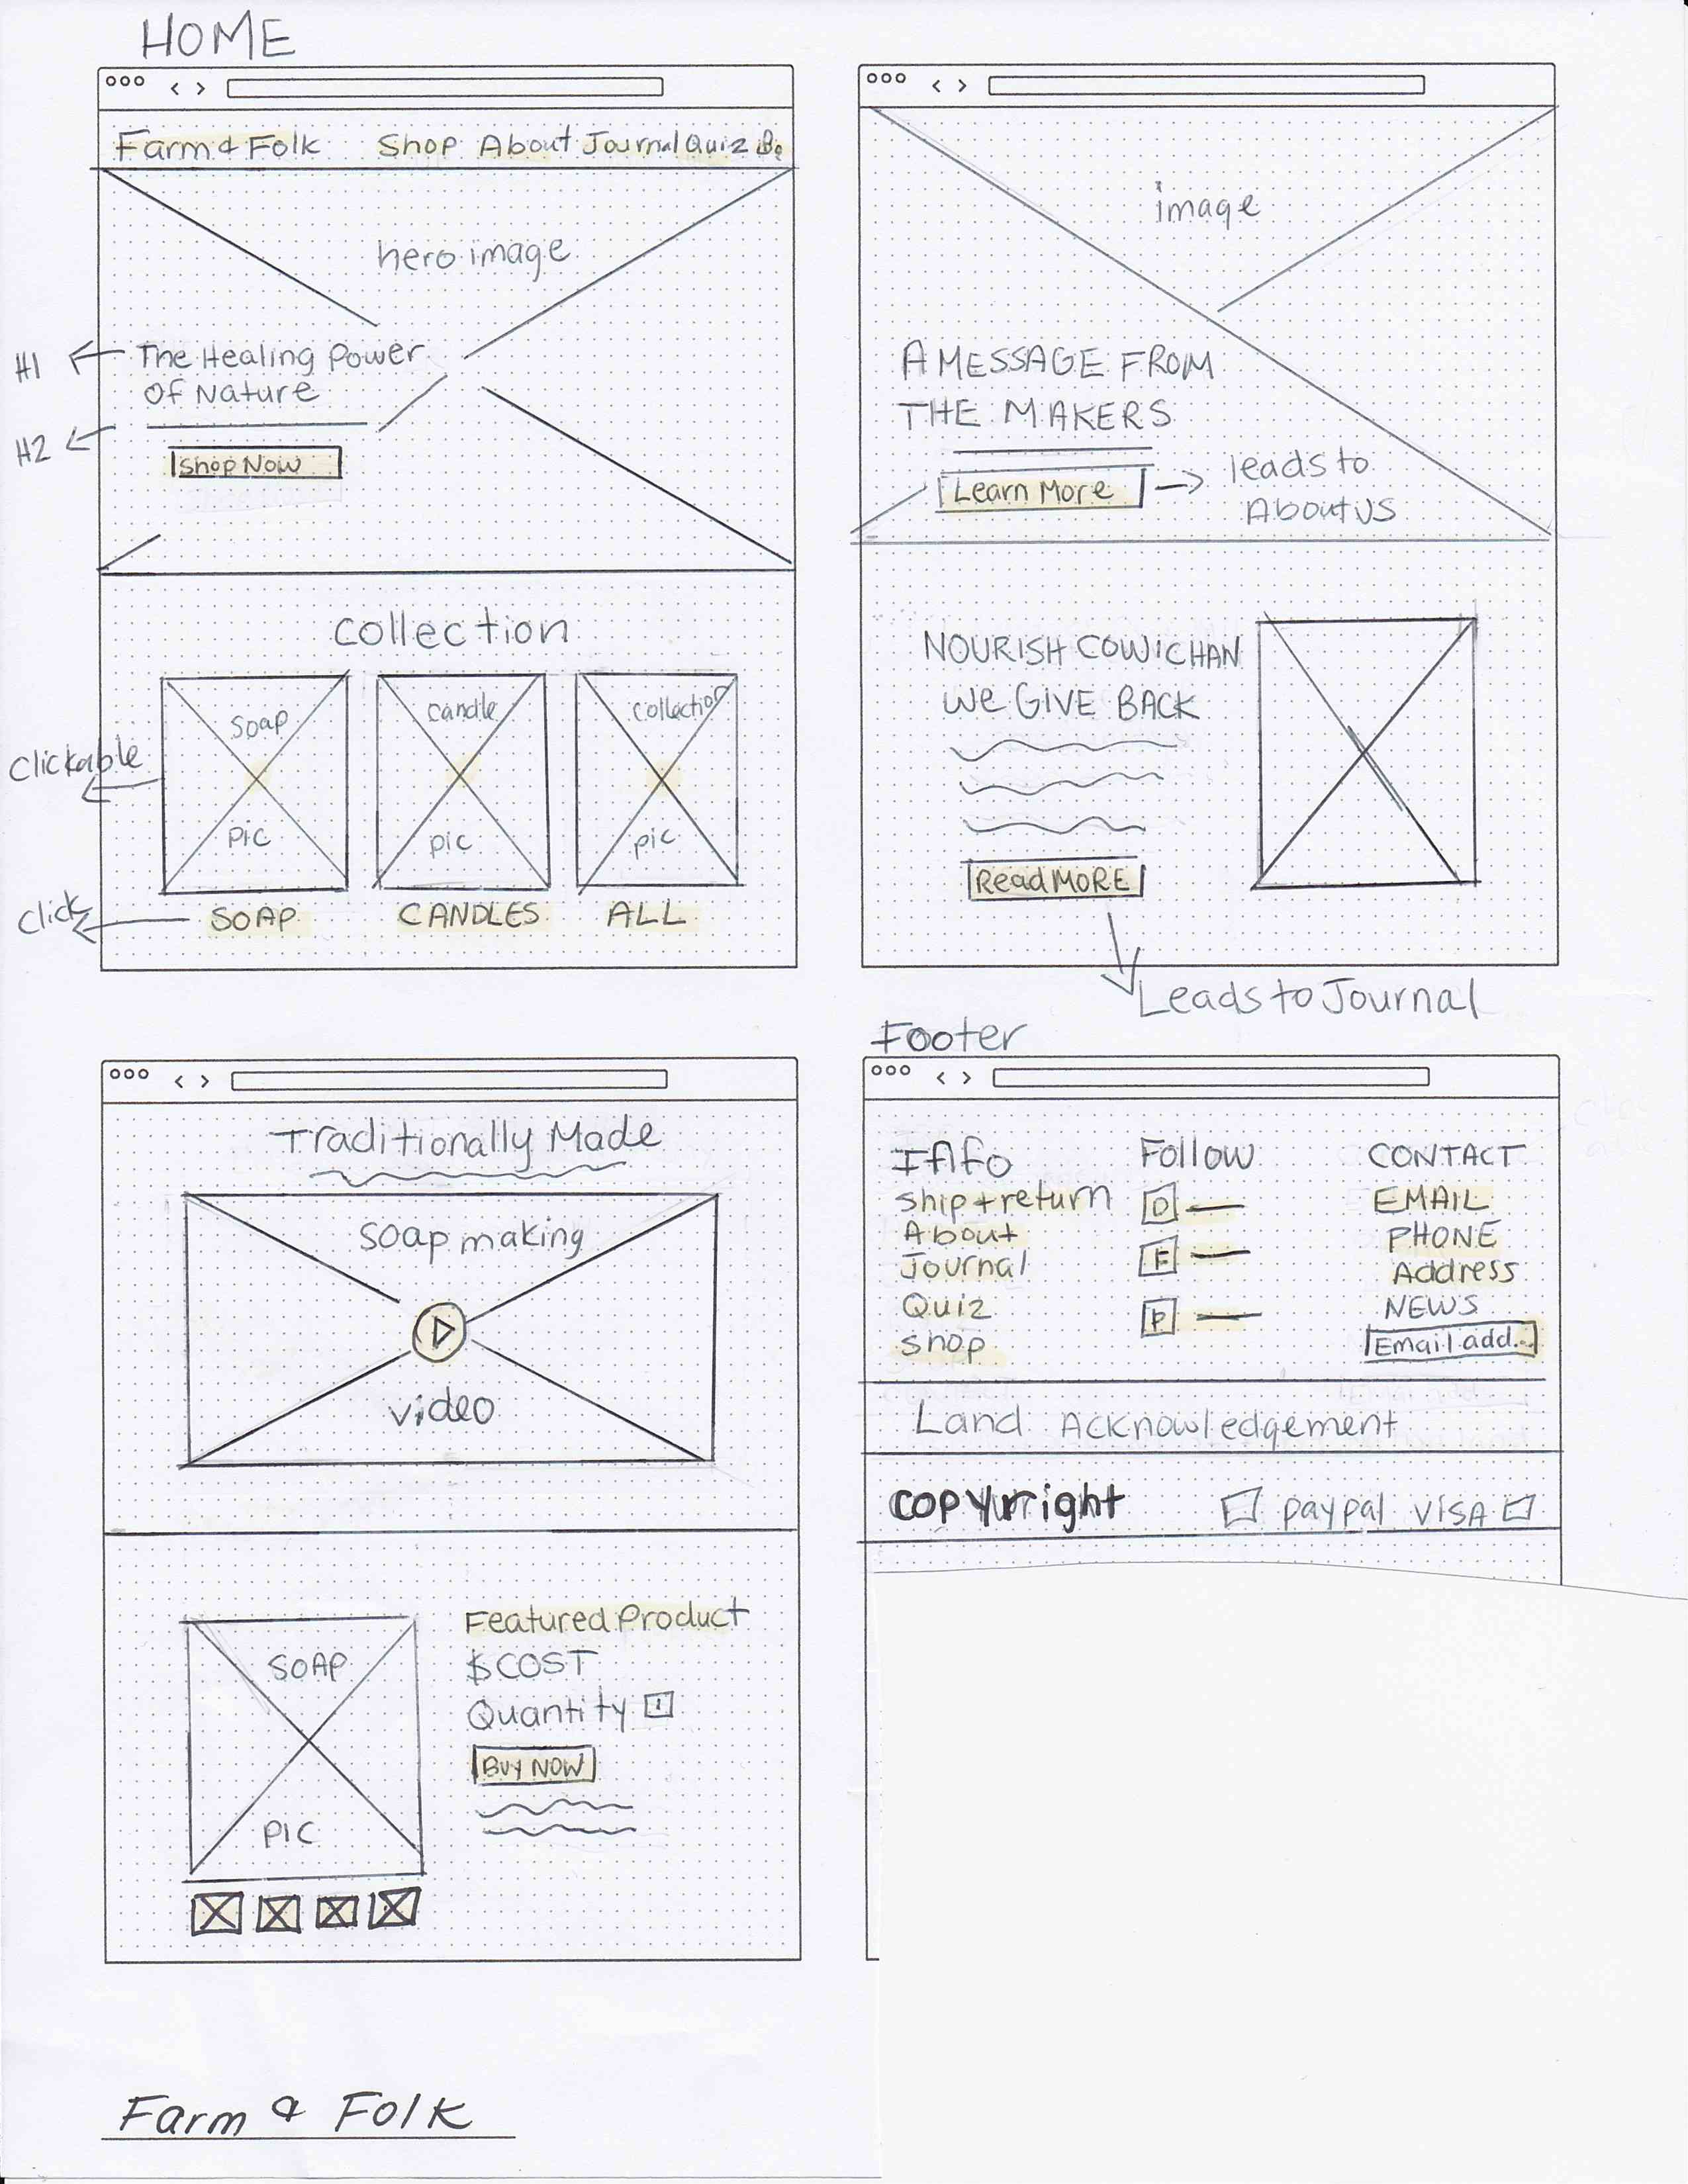 HOME
Farm & Folk Shop About Journal Quiz
hero image
H1
The Healing Power
of Nature
H2
Shop Now
collection
Soap
pic
candle
pic
collection
pic
Clickable
Click
SOAP CANDLES ALL
image
A MESSAGE FROM
THE MAKERS
Learn More
leads to
About US
NOURISH COWICHAN
We GIVE BACK
Read MORE
Leads to Journal
Traditionally Made
Soap making
video
SOAP
PIC
Featured Product
$COST
Quantity 1
BUY NOW
Footer
Info
Ship + return
About
Journal
Quiz
Shop
Follow
O
F
P
CONTACT
EMAIL
PHONE
Address
NEWS
Email add...
Land Acknowledgement
copyright paypal VISA
Farm & Folk